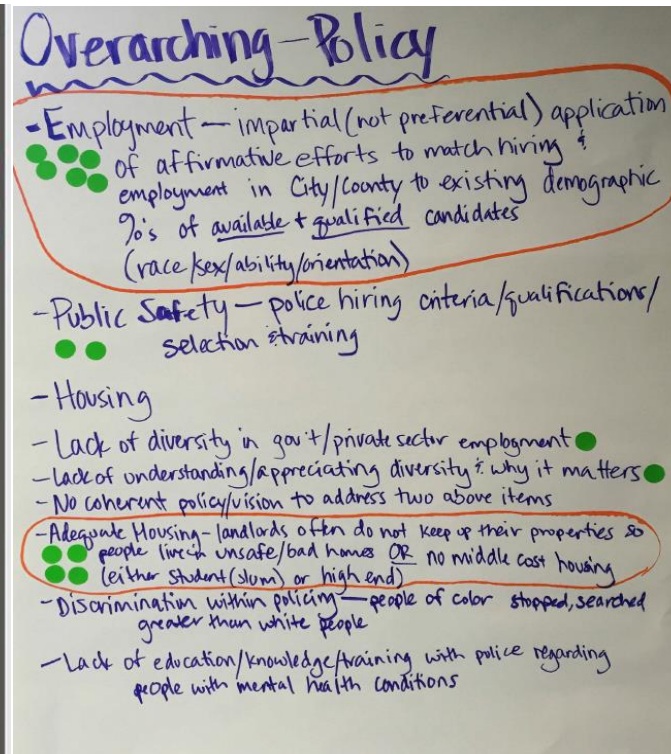 Overarching - Policy
- Employment — impartial (not preferential) application
of affirmative efforts to match hiring &
employment in City/County to existing demographic
%'s of available + qualified candidates
(race/sex/ability/orientation)
- Public Safety — police hiring criteria/qualifications/
selection & training
- Housing
- Lack of diversity in gov't/private sector employment
- Lack of understanding/appreciating diversity & why it matters
- No coherent policy/vision to address two above items
- Adequate Housing - landlords often do not keep up their properties so
people live in unsafe/bad homes OR no middle cost housing
(either student (slum) or high end)
- Discrimination within policing — people of color stopped, searched
greater than white people
- Lack of education/knowledge/training with police regarding
people with mental health conditions